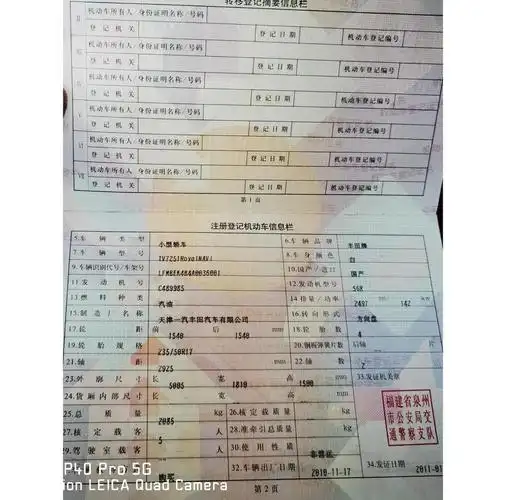 转移登记摘要信息栏
Ⅱ 机动车所有人/身份证明名称/号码
登记机关 登记日期 机动车登记编号
机动车所有人/身份证明名称/号码
登记机关 登记日期 机动车登记编号
机动车所有人/身份证明名称/号码
登记机关 登记日期 机动车登记编号
机动车所有人/身份证明名称/号码
登记机关 登记日期 机动车登记编号
Ⅵ 机动车所有人/身份证明名称/号码
登记机关 登记日期 机动车登记编号
Ⅶ 机动车所有人/身份证明名称/号码
登记机关 登记日期 机动车登记编号
第1页
注册登记机动车信息栏
5.车辆类型 小型轿车 6.车辆品牌 丰田牌
7.车辆型号 8.车身颜色 白
9.车辆识别代号/车架号 10.国产/进口 国产
11.发动机号 C489985 12.发动机型号 5GR
13.燃料种类 汽油 14.排量/功率 2497 ml 142 kw
15.制造厂名称 天津一汽丰田汽车有限公司 16.转向形式 方向盘
17.轮距 前 1540 后 1540 mm 18.轮胎数 4
19.轮胎规格 235/50R17 20.钢板弹簧片数 后轴 片
21.轴距 2925 mm 22.轴数 2
23.外廓尺寸 长 5005 宽 1810 高 1500 mm 33.发证机关章
24.货厢内部尺寸 长 宽 高 mm
25.总质量 2085 kg 26.核定载质量 kg
27.核定载客 5 人 28.准牵引总质量 kg
29.驾驶室载客 人 30.使用性质 非营运
购买 32.车辆出厂日期 2010-11-17 34.发证日期 2011-01
福建省泉州
市公安局交
通警察支队
第2页
P40 Pro 5G
ion LEICA Quad Camera